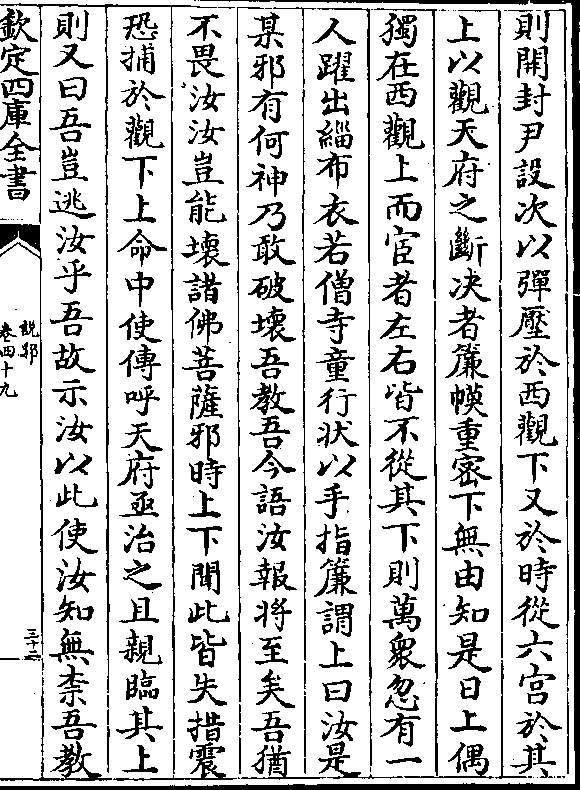 則開封尹設次以彈壓於西觀下又於時從六宫於其
上以觀天府之斷决者簾幙重宻下無由知是日上偶
獨在西觀上而宦者左右皆不從其下則萬衆忽有一
人躍出緇布衣若僧寺童行狀以手指簾謂上曰汝是
某邪有何神乃敢破壞吾教吾今語汝報将至矣吾猶
不畏汝汝豈能壞諸佛菩薩邪時上下聞此皆失措震
恐捕於觀下上命中使傳呼天府亟治之且親臨其上
則又曰吾豈逃汝乎吾故示汝以此使汝知無柰吾教
欽定四庫全書
說郛
卷四十九
三十二